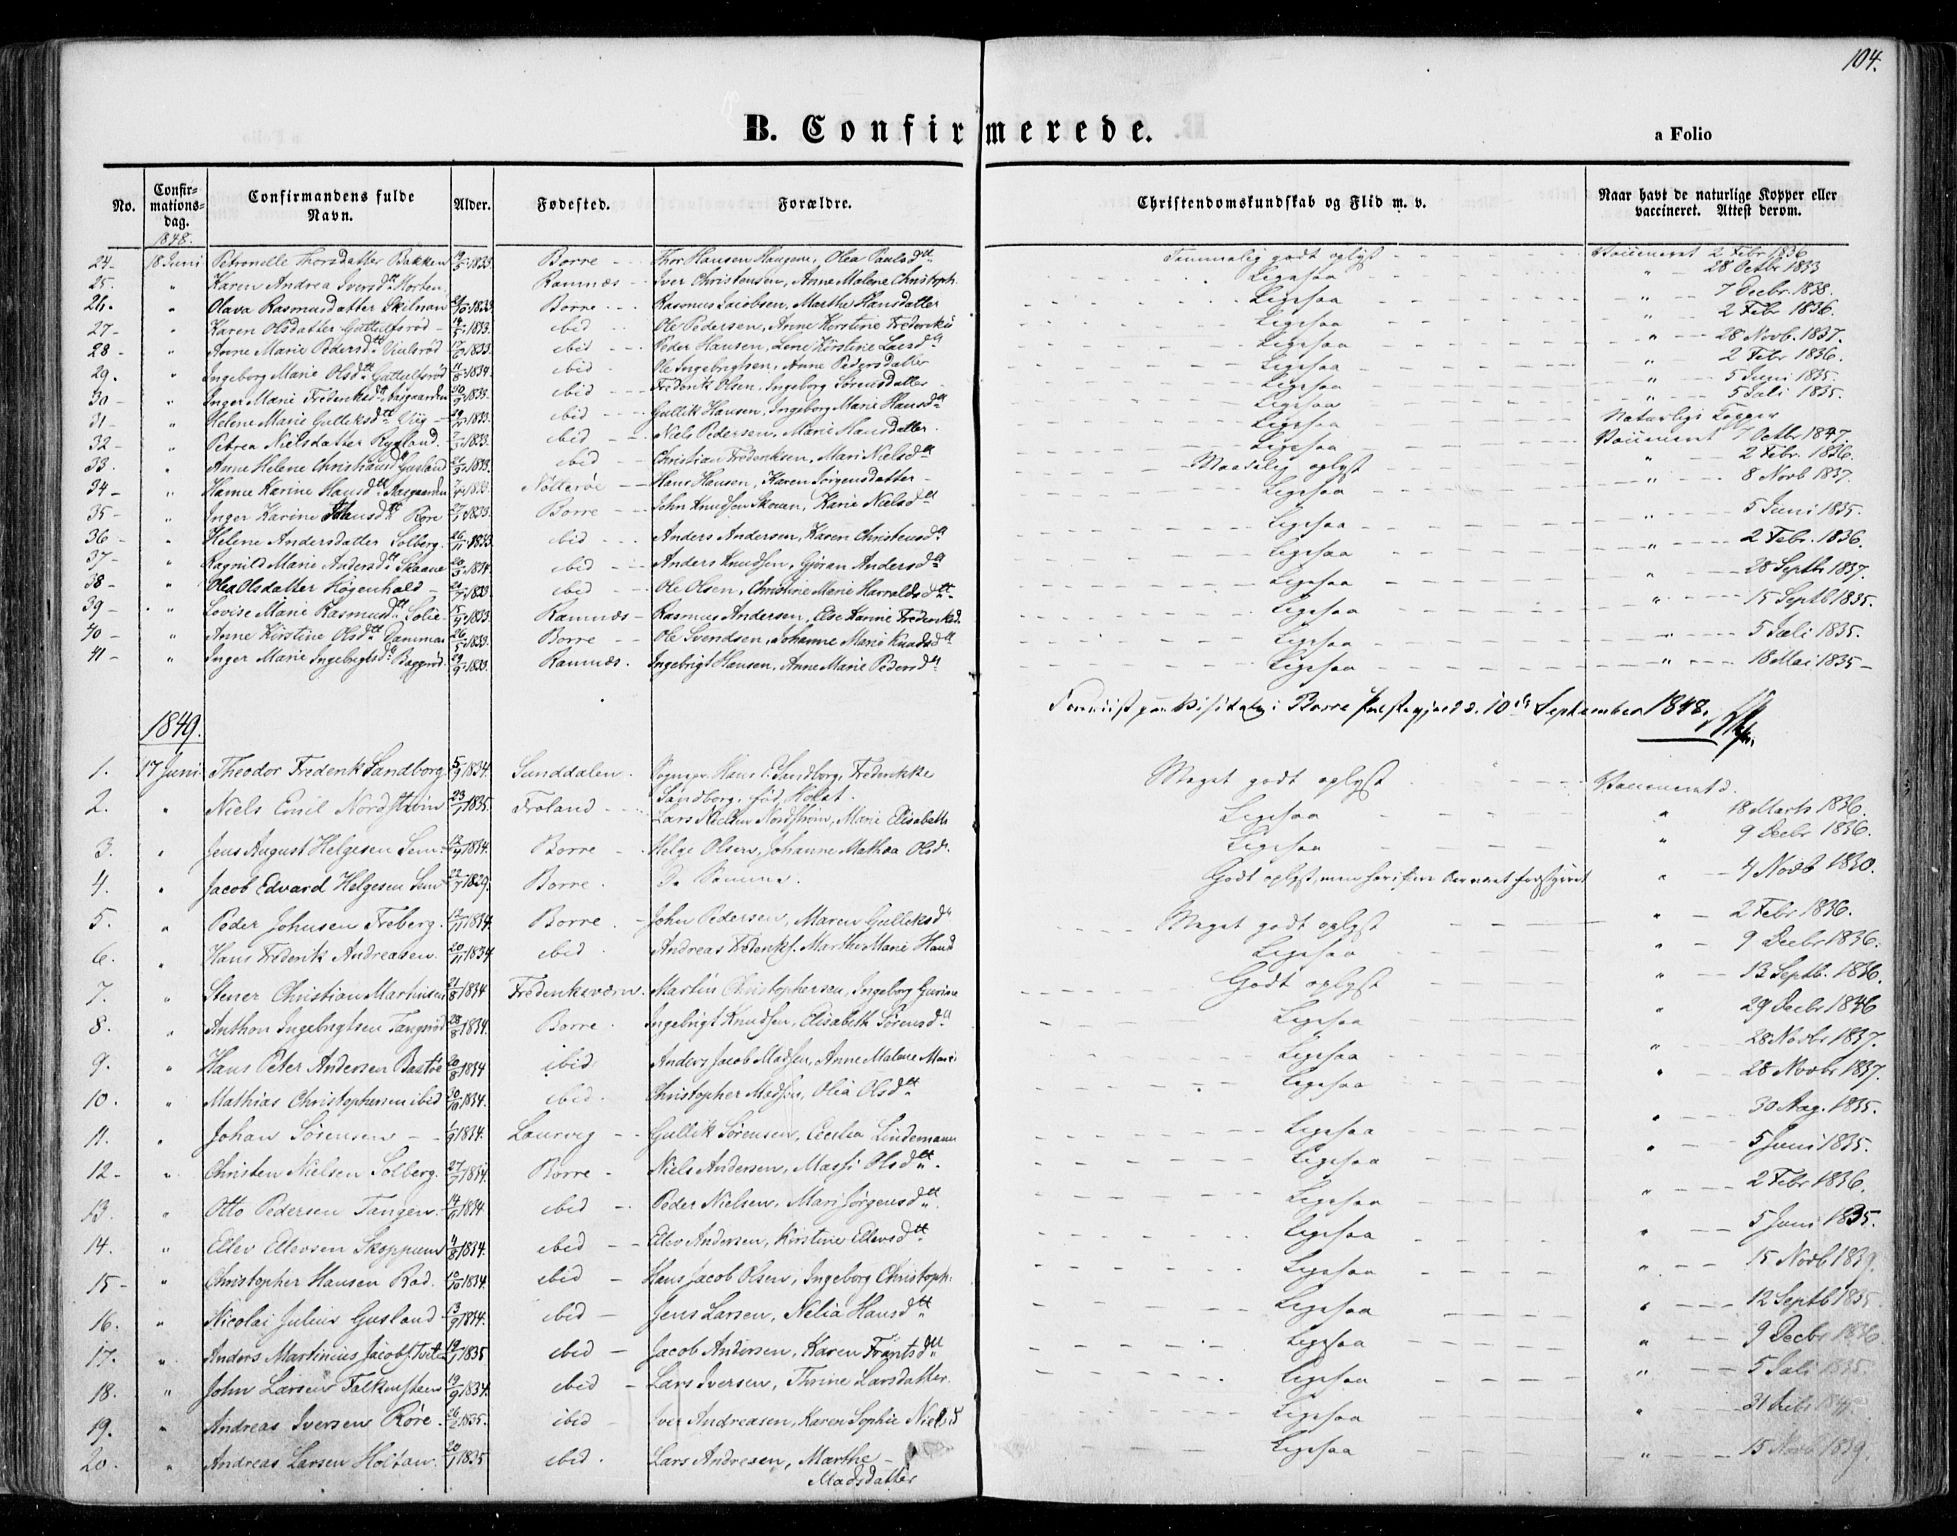 104.
B. Confirmerede.
a Folio
No. Confirmationsdag. Confirmandens fulde Navn. Alder. Fødested. Forældre. Christendomskundskab og Flid m. v. Naar havt de naturlige Kopper eller vaccineret. Attest derom.
1848.
24 - 18 Juni Petronelle Thorsdatter Bakken 1833 Borre - Thor Hansen Haugen, Olea Paulsdtt Temmelig godt oplyst Vaccineret 2 Febr 1836
25. " Karen Andrea Iversdtt Horten Ramnæs - Iver Christensen, Anne Malene Christoph. Ligesaa " 28 Octbr 1833
26. " Olava Rasmusdatter 1833 Borre - Rasmus Jacobsen, Marthe Hansdatter Ligesaa " 7 Decbr. 1838.
27 - " Karen Olsdatter 1833. ibid - Ole Pedersen, Anne Kirstine Frederiks Ligesaa " 2 Febr 1836.
28 - " Anne Marie Pedersdtt 1833. ibid - Peder Hansen, Lene Kirstine Larsd Ligesaa " 28 Novb. 1837.
29. " Ingeborg Marie Olsdtt 1834. ibid - Ole Ingebrigtsen, Anne Pedersdatter Ligesaa " 2 Febr 1836.
30 - " Inger Marie Frederiksdtt Aasgaarden 1833. ibid - Frederik Olsen, Ingeborg Sørensdatter Ligesaa " 5 Juni 1835.
31 - " Helene Marie Gulliksdtt Viig 1833. ibid - Gullik Hansen, Ingeborg Marie Hansdtt Ligesaa " 5 Juli 1835.
32 - " Petrea Nielsdatter 1833. ibid - Niels Pedersen, Marie Hansdatter. Ligesaa Naturlige Kopper
33. " Anne Helene Christiansd Gusland 1833. ibid - Christian Frederiksen, Mari Nielsdtt Ligesaa Vaccineret 7 Octbr 1847.
34 - " Hanne Karine Hansdtt Aasgaarden 1833. Nøtterøe - Hans Hansen, Karen Jørgensdatter - Maadelig oplyst " 2 Febr. 1836.
35 - " Inger Karine Hansdtt Røre 1833. Borre - John Knudsen Skoven, Karie Nielsdtt Ligesaa " 8 Novb 1837.
36 - " Helene Andersdatter Solberg 1833. ibid - Anders Andersen, Karen Christensdtt Ligesaa " 5 Juni 1835.
37 - " Ragnild Marie Andersdtt Skaane 1834. ibid - Anders Knudsen, Gjøran Andersdtt Ligesaa " 2 Febr. 1836.
38 - " Olea Olsdatter Høgenhald - 1833 ibid - Ole Olsen, Christine Marie Harraldsdtt Ligesaa " 28 Septb 1837.
39 - " Lovise Marie Rasmusdtt Solie 1833. Ramnæs - Rasmus Andersen, Else Karine Frederiksd. Ligesaa " 15 Septb 1835.
40 - " Anne Kirstine Olsdtt Dammen 1833. Borre - Ole Svendsen, Johanne Marie Knudsdtt Ligesaa " 5 Juli 1835.
41 - " Inger Marie Ingebrigtsd 1833. Ramnæs. Ingebrigt Hansen, Anne Marie Pedersdtt Ligesaa " 18 Mai 1835 -
Visitats i Borre Præstegjeld d. 10de September 1848.
1849.
1. 17 Juni Theodor Frederik Sandborg 5/9 1834. Sunddalen. Hans P. Sandborg, Frederikke Meget godt oplyst Vaccineret
Sandborg, fød Holst.
2. " Niels Emil Nordstrøm 23/1 1835. Froland - Lars Nielsen Nordstrøm, Marie Elisabeth Ligesaa " 18 Marts 1836.
3. " Jens August Helgesen Sem 1834. Borre - Helge Olsen, Johanne Mathea Olsd. Ligesaa " 9 Decbr 1836.
4. " Jacob Edvard Helgesen Sem 1829. Borre. De Samme. Godt oplyst, men " 4 Novb 1830.
5. " Peder Johnsen Freberg. 1834. Borre. John Pedersen, Maren Gulliksdtt Meget godt oplyst " 2 Febr 1836.
6. " Hans Frederik Andreasen. 20/11 1834 ibid. Andreas Frederiks. Marthe Marie Hansd Ligesaa " 9 Decbr 1836.
7. " Stener Christian Martinsen 21/8 1834 Frederiksværn. Martin Christophersen, Ingeborg Gurine Godt oplyst " 13 Septb. 1836.
8. " Anthon Ingebrigtsen 28/8 1834. Borre. Ingebrigt Knudsen, Elisabeth Sørensdtt Ligesaa " 29 Decbr 1846
9. " Hans Peter Andersen Bastøe 20/8 1834 ibid. Anders Jacob Madsen, Anne Malene Mari Ligesaa " 28 Novbr 1837.
10. " Mathias Christophersen ibid 20/10 1834. ibid. Christopher Madsen, Olia Olsdtt Ligesaa " 28 Novbr 1837.
11. " Johan Sørensen - 1834. Laurvig - Gullik Sørensen, Cecilia Lindemann Ligesaa " 30 Aug. 1835.
12 - " Christen Nielsen Solberg. 1834. Borre - Niels Andersen, Massi Olsdtt. Ligesaa " 5 Juni 1835.
13. " Otto Pedersen Tangen. 1834 ibid - Peder Nielsen, Mari Jørgensdtt. Ligesaa " 2 Febr 1836.
14. " Ellev Ellevsen Skoppum 4/8 1834. ibid - Ellev Andersen, Kirstine Ellevsdtt Ligesaa " 5 Juni 1835.
15 - " Christopher Hansen Rød. 1834. ibid - Hans Jacob Olsen, Ingeborg Christoph. Ligesaa " 15 Novb 1839.
16. " Nicolai Julius Gusland - 13/9 1834. ibid - Jens Larsen, Nelia Hansdtt Ligesaa " 12 Septb 1835.
17. " Anders Martinius Jacobs. 1835 ibid - Jacob Andersen, Karen Frantsdtt Ligesaa " 9 Decbr 1836
18. " John Larsen Falkensteen 19/9 1834. ibid - Lars Iversen, Thrine Larsdatter. Ligesaa " 5 Juli 1835.
19. " Andreas Iversen Røre. 1835. ibid - Iver Andreasen, Karen Sophie Nielsd Ligesaa "
20. " Andreas Larsen Holtan. 20/1 1835 ibid. Lars Andresen, Marthe - Ligesaa " 15 Novb 1839.
Madsdatter